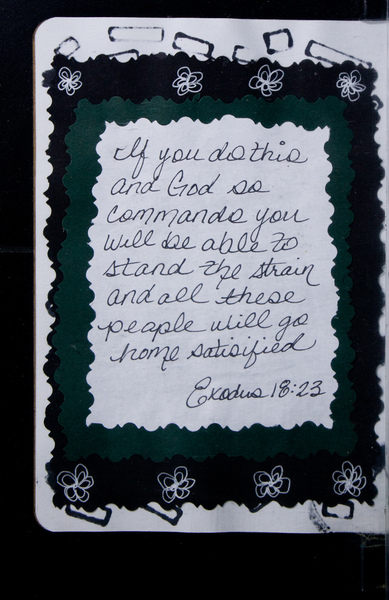 If you do this
and God so
commands you
will be able to
stand the strain
and all these
people will go
home satisified
Exodus 18:23